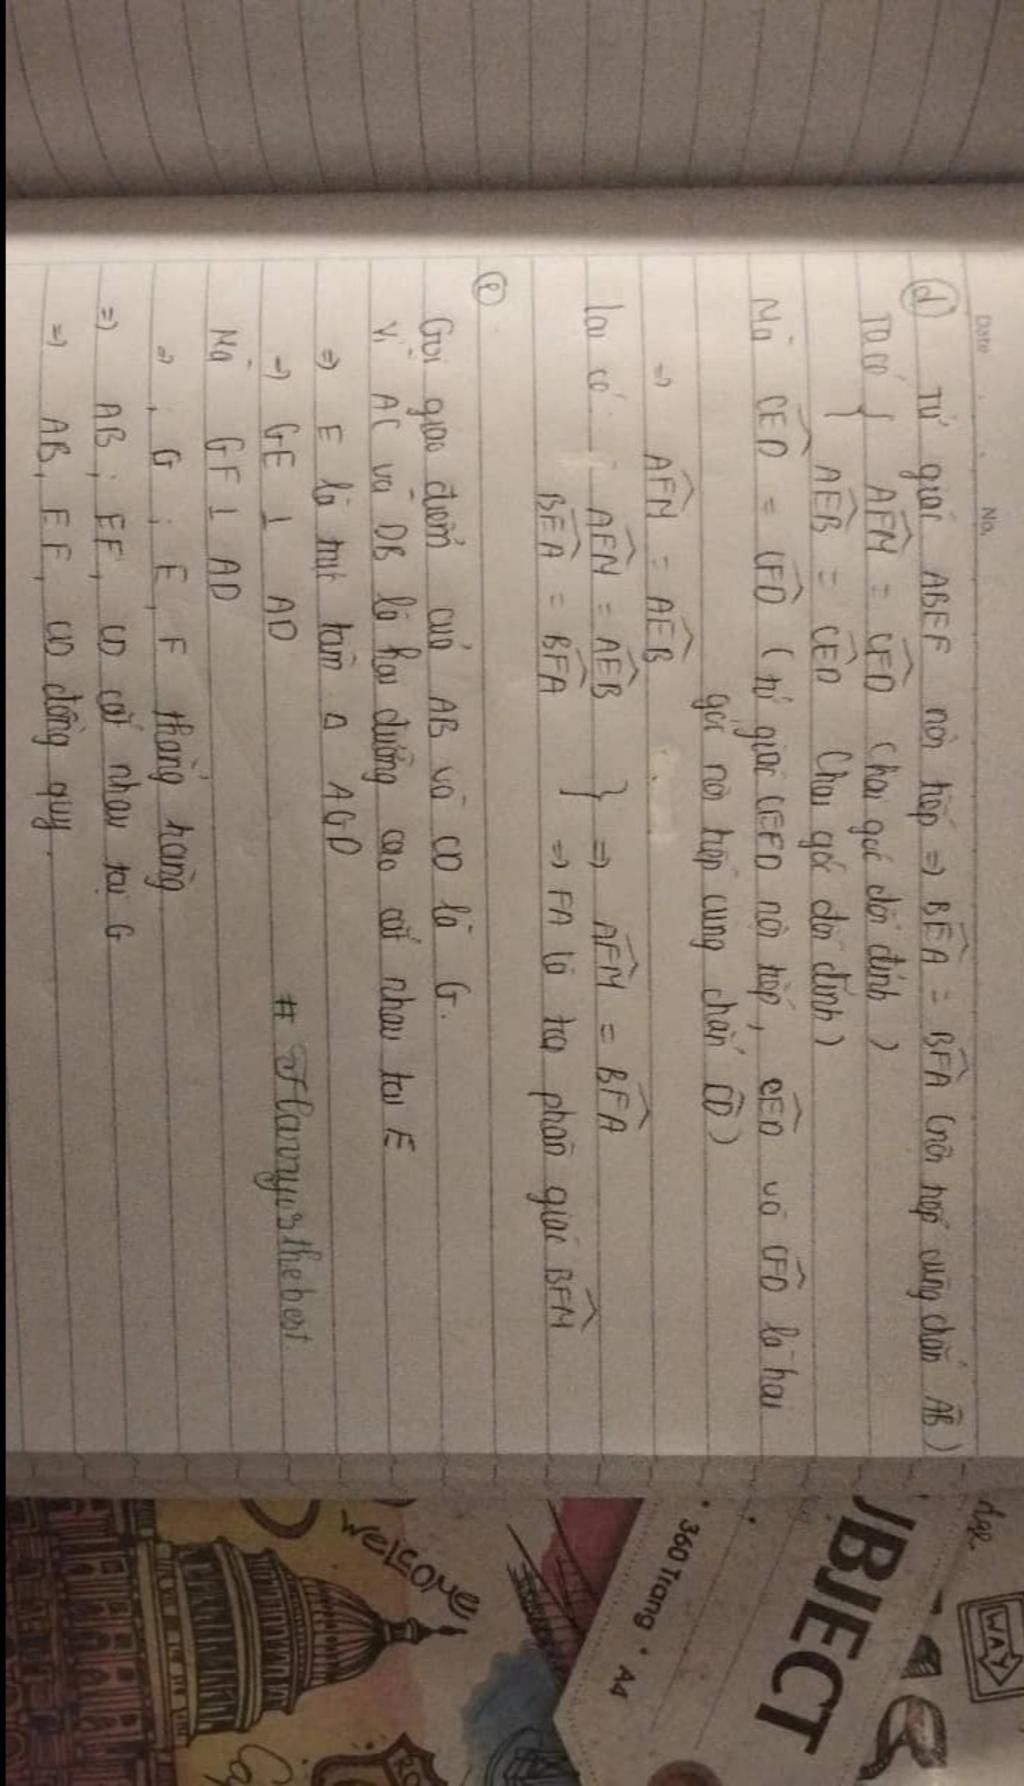 Date No.
d) Tứ giác ABEF nội tiếp => BEA = BFA (nội tiếp cùng chắn AB)
Ta có { AFM = CFD (hai góc đối đỉnh)
AEB = CED (hai góc đối đỉnh)
Mà CED = CFD (tứ giác CEFD nội tiếp, CED và CFD là hai
góc nội tiếp cùng chắn CD)
=> AFM = AEB
lại có: AFM = AEB } => AFM = BFA
BEA = BFA => FA là tia phân giác BFM
e)
Gọi giao điểm của AB và CD là G.
Vì AC và DB là hai đường cao cắt nhau tại E
=> E là trực tâm Δ AGD
=> GE ⊥ AD
Mà GF ⊥ AD
=> G; E, F thẳng hàng
=> AB; EF, CD cắt nhau tại G
=> AB, EF, CD đồng quy.
UBJECT
360 Trang • A4
WAY